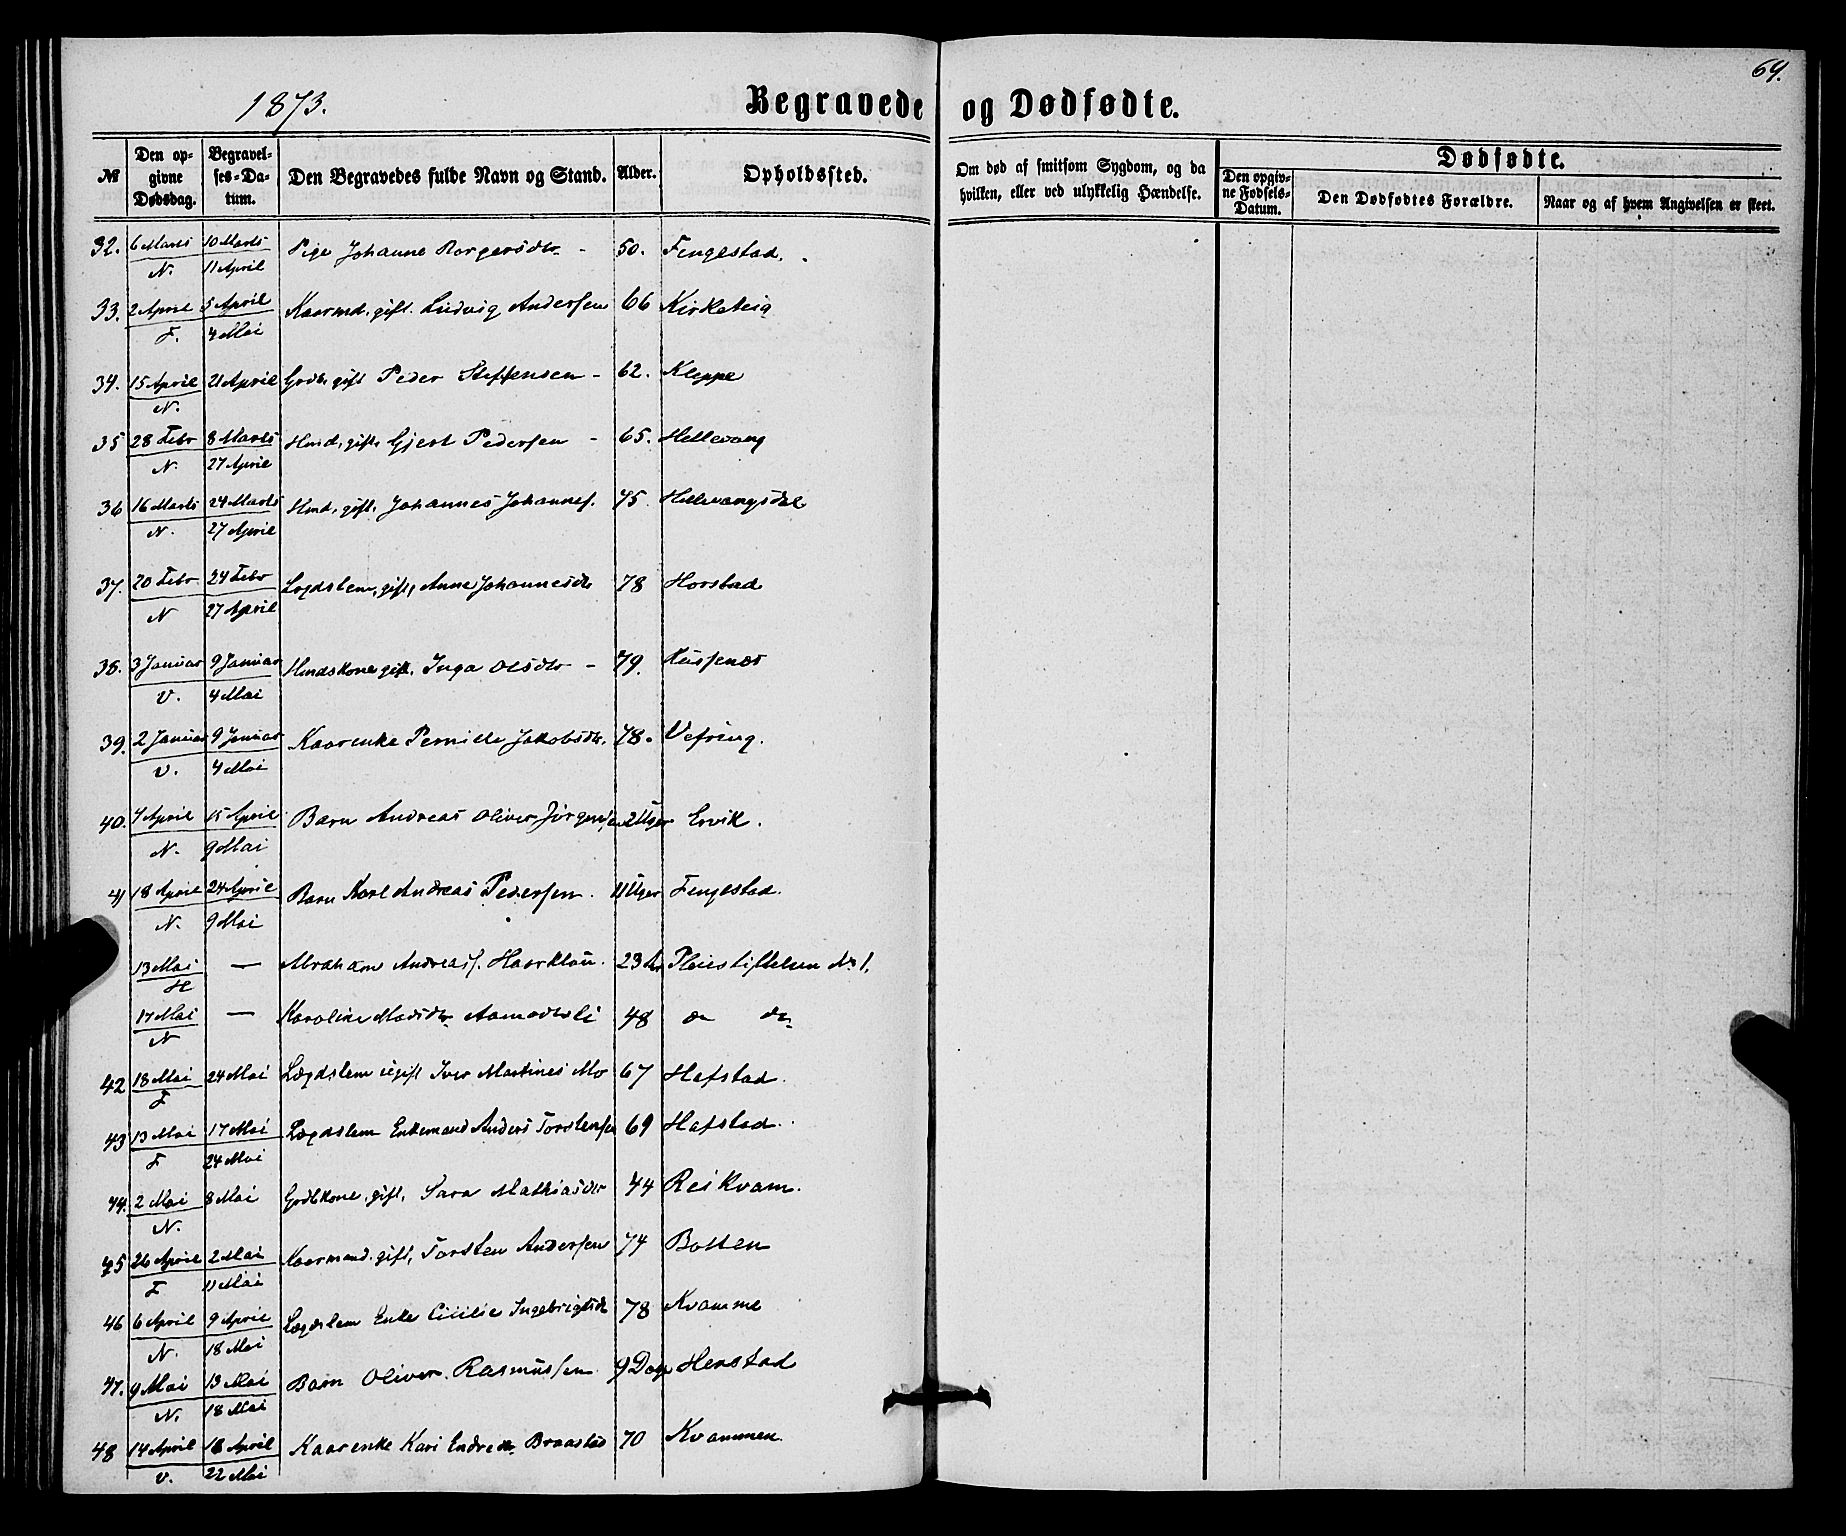 64.
1873.
Begravede og Dødfødte.
№
Den opgivne Dødsdag.
Begravelses-Datum.
Den Begravedes fulde Navn og Stand.
Alder.
Opholdssted.
Om død af smitsom Sygdom, og da hvilken, eller ved ulykkelig Hændelse.
Dødfødte.
Den opgivne Fødsels-Datum.
Den Dødfødtes Forældre.
Naar og af hvem Angivelsen er skeet.
32. 6 Marts N. 10 Marts 11 April Pige Johanne Borgersdtr - 50. Fengestad.
33. 2 April F. 5 April 4 Mai Kaarmd. gift. Ludvig Andersen 66 Kirketeig
34. 15 April N. 21 April Grdbr gift Peder Steffensen - 62. Kleppe
35 28 Febr N. 8 Marts 27 April Hmd. gift. Gjert Pedersen - 65. Hellevang
36 16 Marts N. 24 Marts 27 April Hmd. gift. Johannes Johannes. 75 Hellevangsdal
37. 20 Febr N 24 Febr 27 April Lægdslem, gift, Anne Johannesdtr 78 Horstad
38. 3 Januar V. 9 Januar 4 Mai Hmdskone gift. Inga Olsdtr - 79.
39. 2 Januar V. 9 Januar 4 Mai Kaarenke Pernille Jakobsdtr. 78. Vefring.
40. 4 April N. 15 April 9 Mai Barn Andreas Oliver Jørgensen 2 Uger Ervik.
41 18 April N. 24 April 9 Mai Barn Karl Andreas Pedersen. 11 Uger Fengestad.
13 Mai H — Abraham Andreas. Haarklau. 23 Pleiestiftelsen No 1.
17 Mai N — Karoline Madsdtr 48 do do
42 18 Mai F 24 Mai Lægdslem ugift Iver Martines Mo 67 Hafstad.
43 13 Mai F 17 Mai 24 Mai Lægdslem Enkemand Anders Torstensen 69 Hafstad.
44. 2 Mai N. 8 Mai Grdbkone, gift, Sara Mathiasdtr 44 Reikvam.
45 26 April F 2 Mai 11 Mai Kaarmand. gift, Torsten Andersen 74 Botten
46 6 April N. 9 April 18 Mai Lægdslem Enke Cicilie Ingebrigtsdtr 78 Kvamme
47. 9 Mai N. 13 Mai 18 Mai Barn Oliver. Rasmussen 9 Dage Henstad
48 14 April V. 18 April 22 Mai Kaarenke Kari Endredtr. Braastad 70 Kvammen.